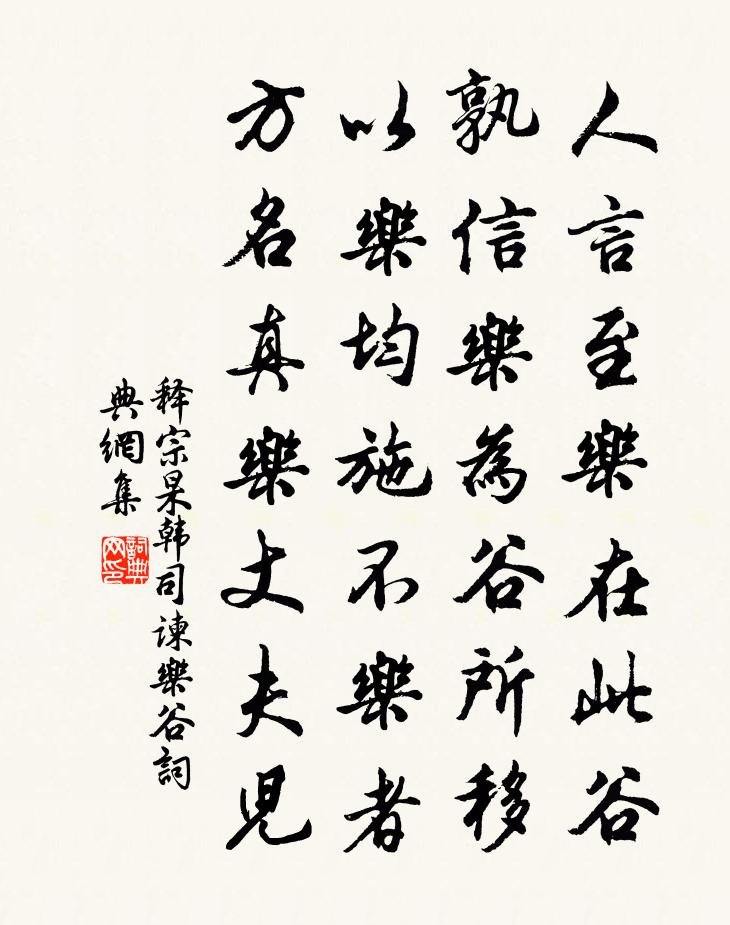 人言至樂在此谷
孰信樂為谷所移
以樂均施不樂者
方名真樂丈夫兒
释宗杲韩司谏樂谷詞
典網集
詞典网印